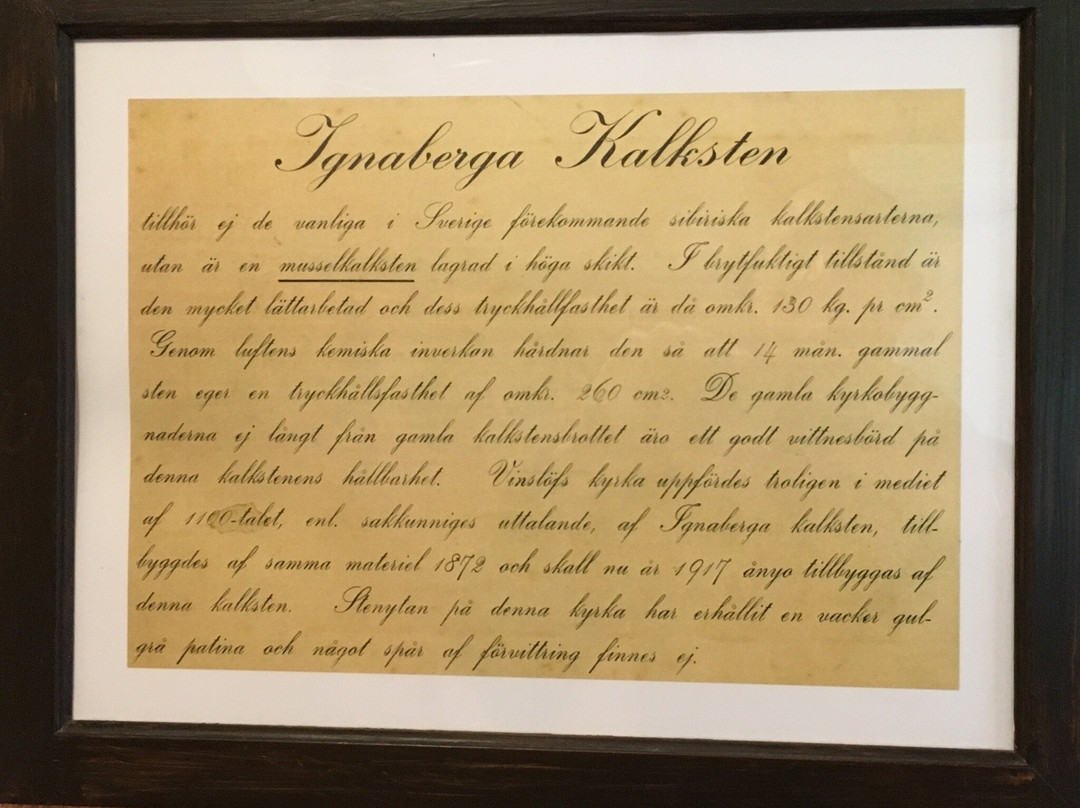 Ignaberga Kalksten
tillhör ej de vanliga i Sverige förekommande sibiriska kalkstensarterna,
utan är en musselkalksten lagrad i höga skikt. I brytfuktigt tillstånd är
den mycket lättarbetad och dess tryckhållfasthet är då omkr. 130 kg. pr cm².
Genom luftens kemiska inverkan hårdnar den så att 14 mån. gammal
sten eger en tryckhållsfasthet af omkr. 260 cm2. De gamla kyrkobygg-
naderna ej långt från gamla kalkstensbrottet äro ett godt vittnesbörd på
denna kalkstenens hållbarhet. Vinslöfs kyrka uppfördes troligen i mediet
af 1100-talet, enl. sakkunniges uttalande, af Ignaberga kalksten, till-
byggdes af samma materiel 1872 och skall nu år 1917 ånyo tillbyggas af
denna kalksten. Stenytan på denna kyrka har erhållit en vacker gul-
grå patina och något spår af förvittring finnes ej.